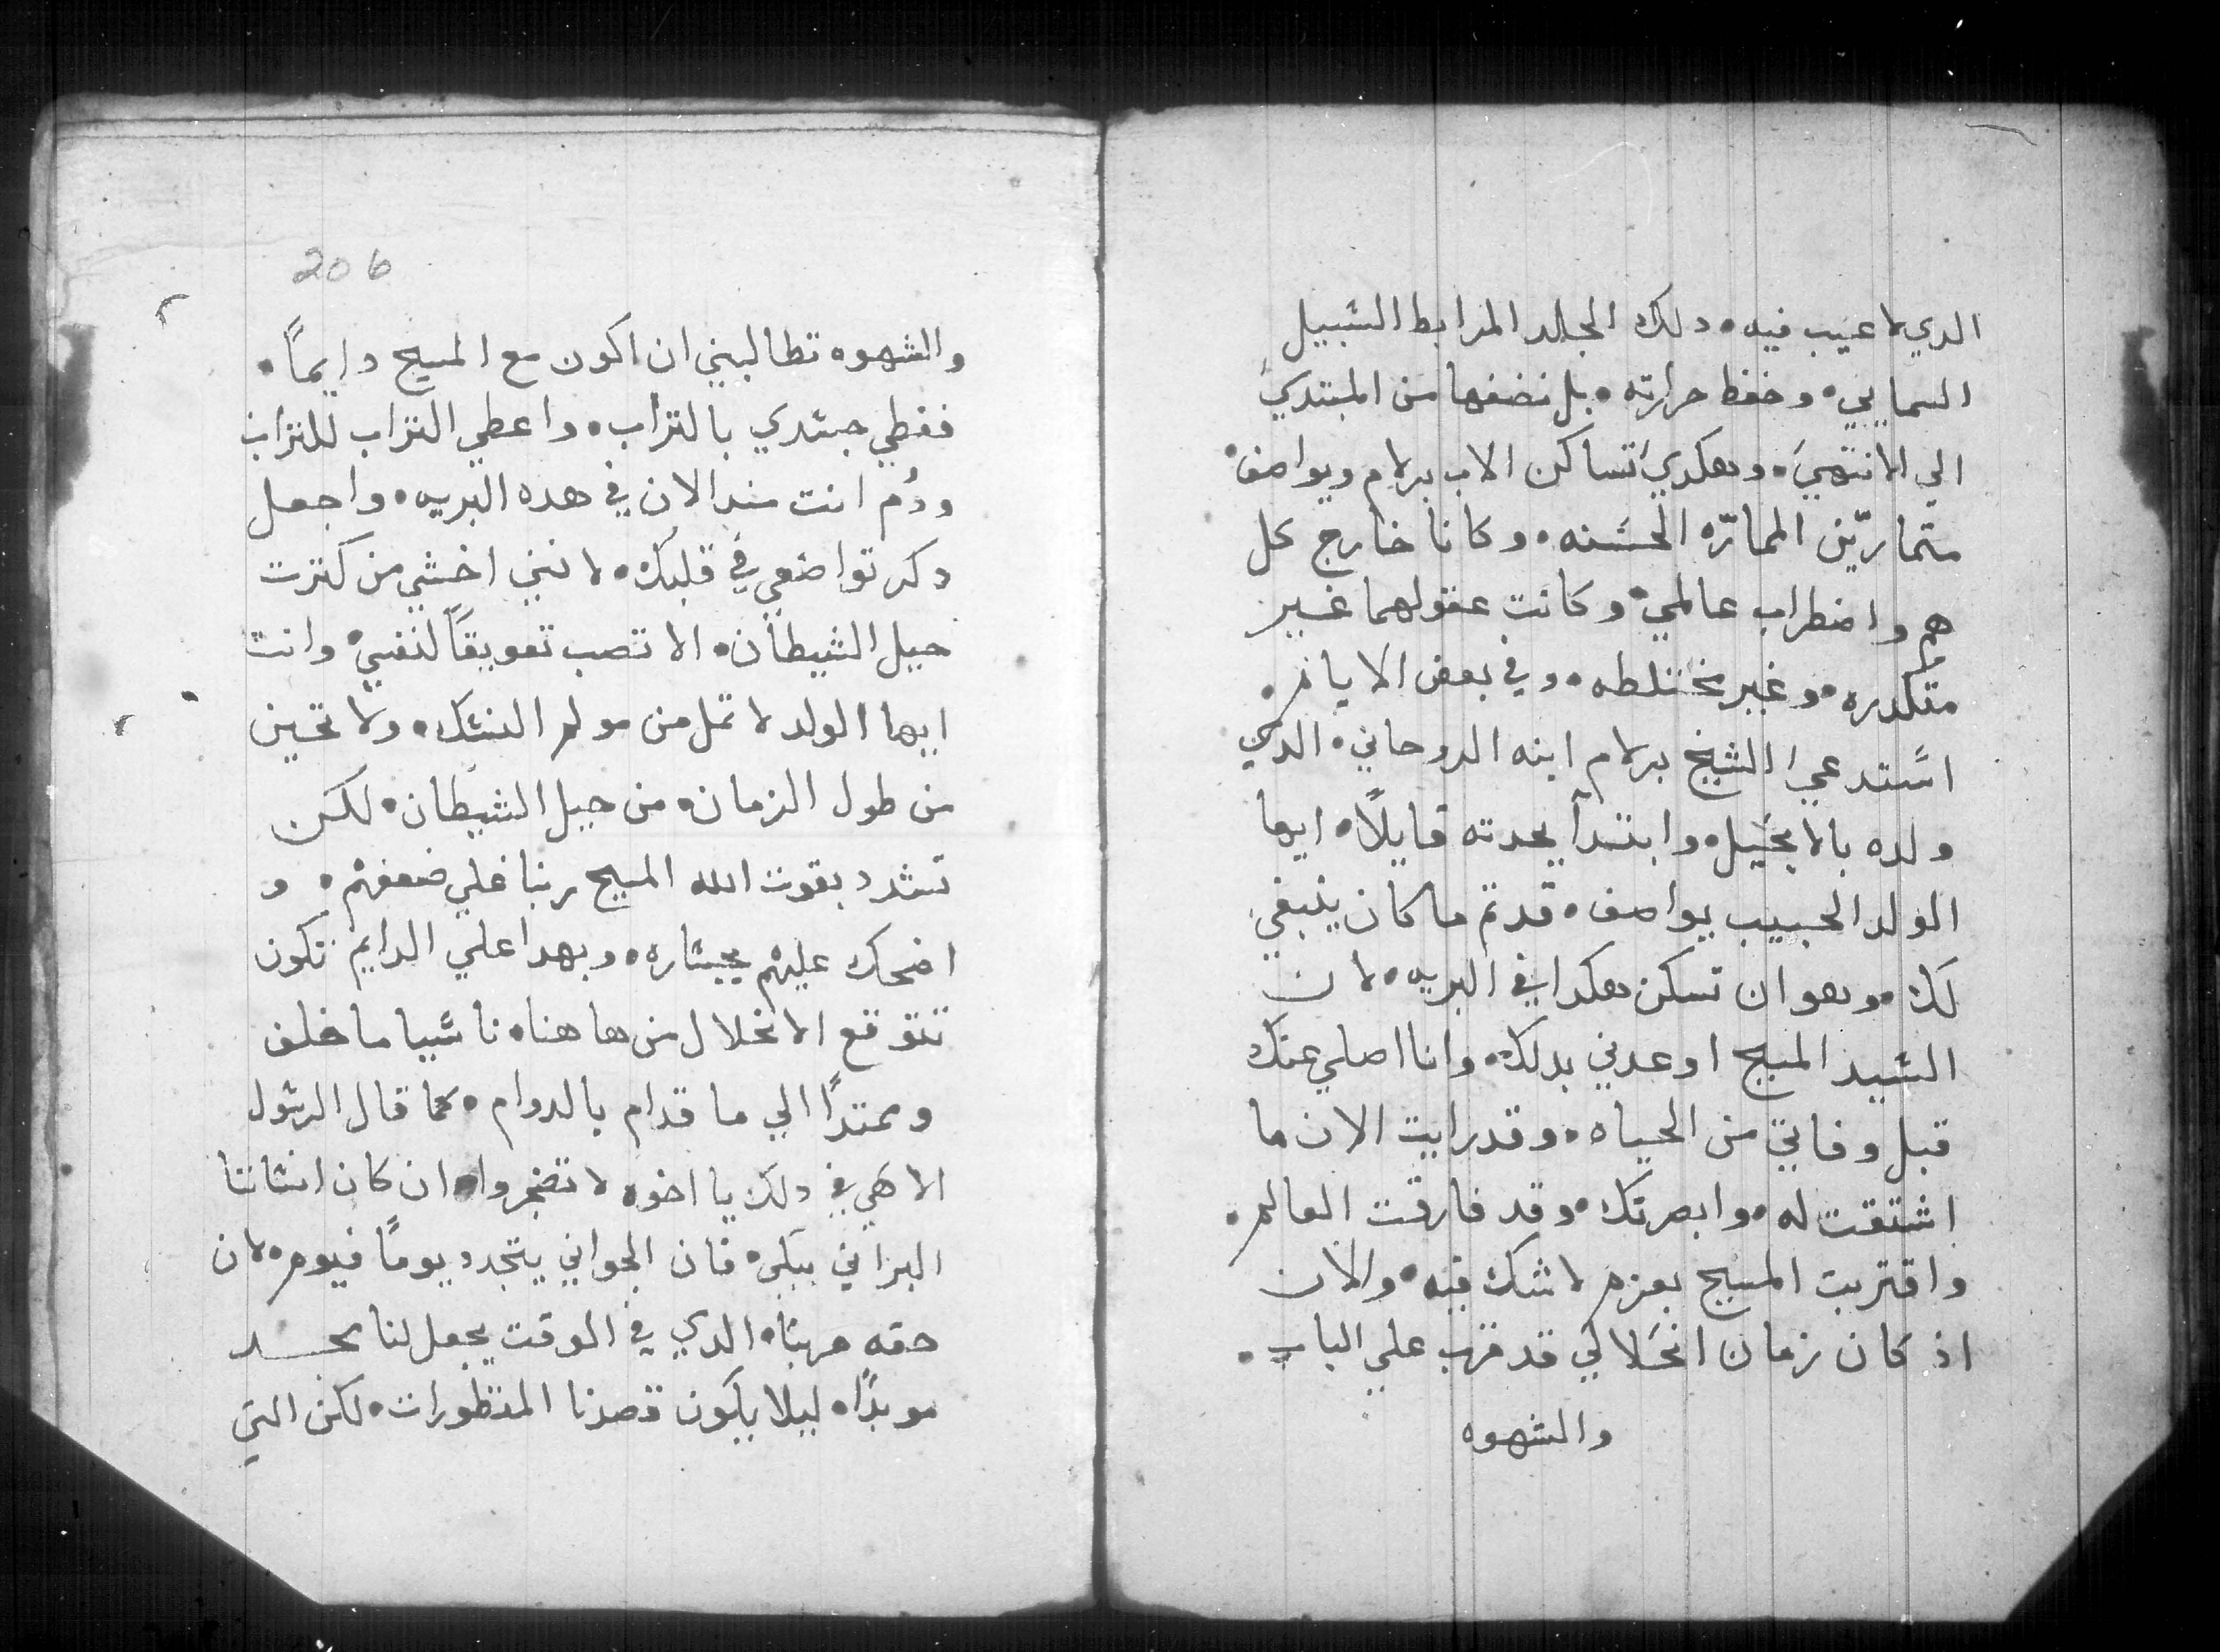 الدي لا عيب فيه • دلك الجلد المرابط السبيل
السمايي • وحفظ حرارته • بل نضفها من المبتدي
الي الانتهي • وهكدي اتساكن الاب برلام ويواصف •
متمارّين المماتّره الحسنه • وكانا خارج كل
هم واضطراب عالمي • وكانت عقولهما غير
متكدره • وغير مختلطه • وفي بعض الايام •
استدعي الشيخ برلام ابنه الروحاني • الدي
ولده بالانجيل • وابتدأ يحدته قايلاً • ايها
الولد الحبيب يواصف • قد تم ما كان ينبغي
لك • وهو ان تسكن هكدا في البريه • لان
السيد المسيح اوعدني بدلك • وانا اصلي عنك
قبل وفاتي من الحياه • وقد رايت الان ما
اشتقت له • وابصرتك • وقد فارقت العالم •
واقتربت المسيح بعزم لا شك فيه • والان
اذ كان زمان انحلالي قد قرب علي الباب •
والشهوه
206
والشهوه تطالبني ان اكون مع المسيح دايماً •
فغطي جسدي بالتراب • واعطي التراب للتراب
ودُم انت مند الان في هده البريه • واجعل
دكر تواضعي في قلبك • لانني اخشي من كترت
حيل الشيطان • الا تصب تعويقاً لنفسي • وانت
ايها الولد لا تمل من مولم النسك • ولا تحين
من طول الزمان • من حيل الشيطان • لكن
تشدد بقوت الله المسيح ربنا علي ضعفهم • و
اضحك عليهم بجساره • وبهدا علي الدايم تكون
تتوقع الانحلال من هاهنا • ناسيا ما خلف
وممتداً الي ما قدام بالدوام • كما قال الرسول
الاهي في دلك يا اخوه لا تضجروا • ان كان انساننا
البراني يبلي • فان الجواني يتجدد يوماً فيوم • لان
حقه هربنا • الدي في الوقت يجعل لنا مجـــد
موبداً • ليلا يكون قصدنا المنظورات • لكن التي